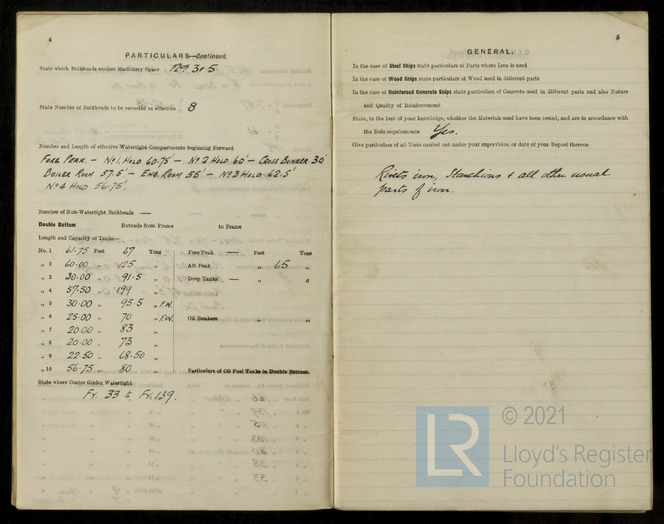 4
PARTICULARS—Continued.
State which Bulkheads enclose Machinery Space Nos 3 & 5
State Number of Bulkheads to be recorded as effective 8
Number and Length of effective Watertight Compartments beginning Forward
Fore Peak. – No 1. Hold 60.75' – No 2 Hold 60' – Cross Bunker 30'
Boiler Room 57.5' – Eng. Room 55' – No 3 Hold 62.5'
No 4 Hold 56.75'.
Number of Non-Watertight Bulkheads —
Double Bottom Extends from Frame to Frame
Length and Capacity of Tanks—
No. 1 61.75 Feet 67 Tons Fore Peak — Feet Tons
„ 2 60.00 „ 125 „ Aft Peak „ 65 „
„ 3 30.00 „ 91.5 „ Deep Tanks — „ „
„ 4 57.50 „ 199 „
„ 5 30.00 „ 95.5 „ F.W. Oil Bunkers „ „
„ 6 25.00 „ 70 „ F.W.
„ 7 20.00 „ 83 „
„ 8 20.00 „ 73 „
„ 9 22.50 „ 68.50 „
„ 10 56.75 „ 80 „ Particulars of Oil Fuel Tanks in Double Bottom.
State where Centre Girder Watertight
Fr. 33 to Fr. 139.
5
GENERAL.
In the case of Steel Ships state particulars of Parts where Iron is used
In the case of Wood Ships state particulars of Wood used in different parts
In the case of Reinforced Concrete Ships state particulars of Concrete used in different parts and also Nature
and Quality of Reinforcement
State, to the best of your knowledge, whether the Materials used have been tested, and are in accordance with
the Rule requirements Yes.
Give particulars of all Tests carried out under your supervision or date of your Report thereon
Rivets iron, Stanchions & all other usual
parts of iron.
LR © 2021
Lloyd's Register
Foundation